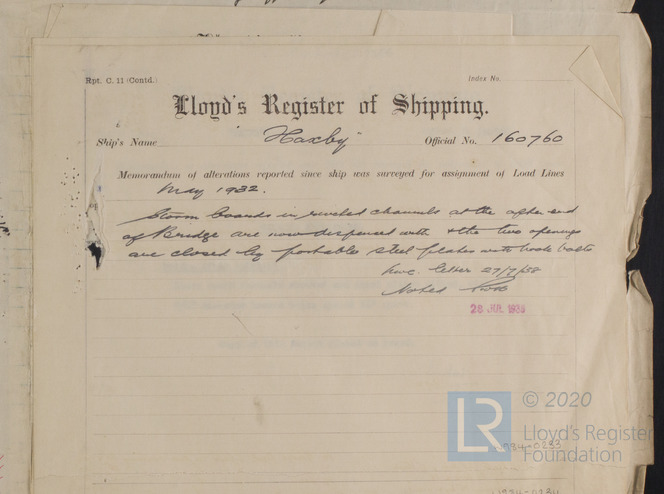 Rpt. C. 11 (Contd.)
Index No.
Lloyd's Register of Shipping.
Ship's Name "Haxby" Official No. 160760
Memorandum of alterations reported since ship was surveyed for assignment of Load Lines
May 1932.
of
Storm boards in riveted channels at the after end
of Bridge are now dispensed with & the two openings
are closed by portable steel plates with hook bolts
letter 27/7/38
Noted
28 JUL 1938
LR © 2020
Lloyd's Register
Foundation